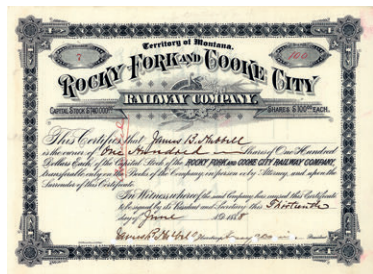 Territory of Montana.
7
100
ROCKY FORK AND COOKE CITY
RAILWAY COMPANY.
CAPITAL STOCK
SHARES $100 EACH.
This Certifies that James B. Hubbell
is the owner of One Hundred Shares of One Hundred
Dollars Each, of the Capital Stock of the ROCKY FORK AND COOKE CITY RAILWAY COMPANY,
transferable only on the Books of the Company in person or by Attorney, and upon the
Surrender of this Certificate.
In Witness whereof the said Company has caused this Certificate
to be signed by its President and Secretary this Thirteenth
day of June 1888